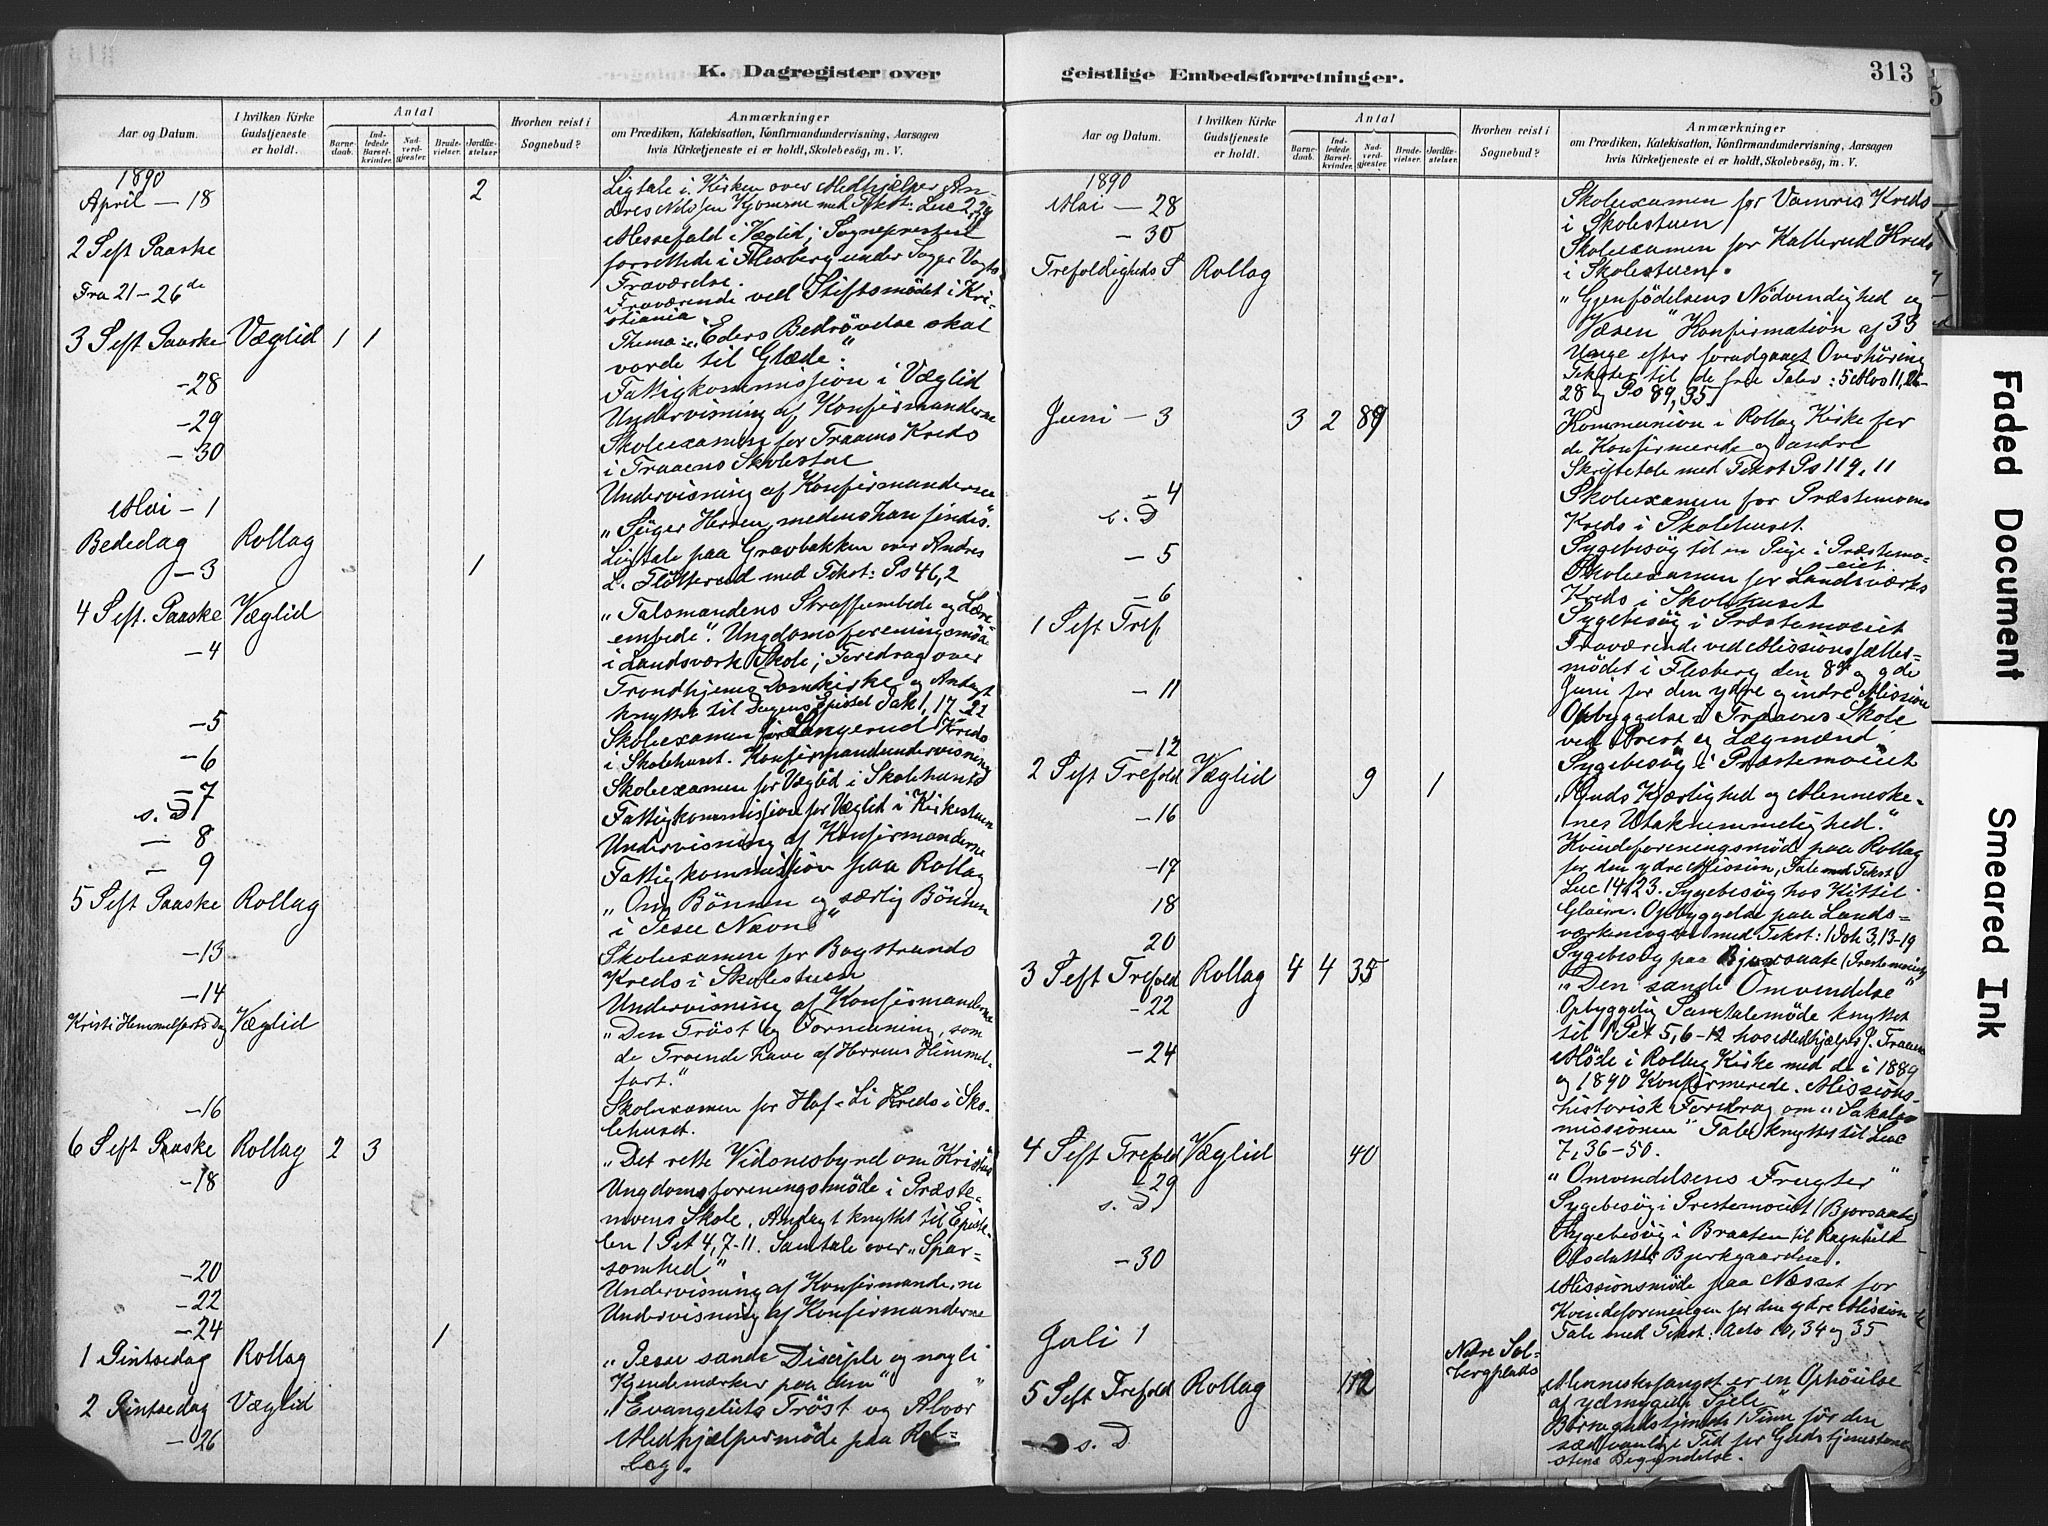 K. Dagregister over
geistlige Embedsforretninger.
313
Aar og Datum.
I hvilken Kirke Gudstjeneste er holdt.
Antal
Barnedaab.
Indledede Barselkvinder.
Nadverdgjester.
Brudevielser.
Jordfæstelser
Hvorhen reist i Sognebud?
Anmærkninger
om Prædiken, Katekisation, Konfirmandundervisning, Aarsagen
hvis Kirketjeneste ei er holdt, Skolebesög, m. V.
1890
April – 18 2 Ligtale i Kirken over Medhjælper An-
dres Nilssen Kjomme med Tekst: Luc 2,29
2 Sft Paaske Messefald i Væglid; Sognepresten
forrettede i Flesberg under Sogpr Vogts
Fraværelse.
Fra 21–26de Fraværende ved Stiftsmödet i Kri-
stiania
3 Sft Paaske Væglid 1 1 Thema: „Eders Bedrövelse skal
vorde til Glæde."
– 28 Fattigkommission i Væglid
– 29 Undervisning af Konfirmanderne
– 30 Skoleexamen for Traaens Kreds
i Traaens Skolestue
Mai – 1 Undervisning af Konfirmanderne
Bededag Rollag „Söger Herren, medens han findes".
– 3 1 Ligtale paa Gravbakken over Andres
L. Flötterud med Tekst: Ps 46,2
4 Sft. Paaske Væglid „Talsmandens Straffembede og Lære-
embede". Ungdomsforeningsmöde
– 4 i Landsværk Skole; Foredrag over
Trondhjems Domkirke og Andagt
knyttet til Dagens Epistel Jak 1, 17–21
– 5 Skoleexamen for Langerud Kreds
– 6 i Skolehuset. Konfirmandundervisning
– 7 Skoleexamen for Væglid i Skolehuset
s. D Fattigkommission for Væglid i Kirkestuen
– 8 Undervisning af Konfirmanderne
– 9 Fattigkommission paa Rollag
5 Sft Paaske Rollag „Om Bönnen og særlig Bönnen
i Jesu Navn"
– 13 Skoleexamen for Bogstrands
Kreds i Skolestuen
– 14 Undervisning af Konfirmanderne
Kristi Himmelfarts Dag Væglid „Den Tröst og Formaning, som
de Troende have af Herrens Himmel-
fart."
– 16 Skoleexamen for Hof-Li Kreds i Sko-
lehuset.
6 Sft Paaske Rollag 2 3 „Det rette Vidnesbyrd om Kristus"
– 18 Ungdomsforeningsmöde i Præste-
moens Skole. Andagt knyttet til Episte-
len 1 Pet 4, 7–11. Samtale over „Spar-
somhed"
– 20 Undervisning af Konfirmanderne
– 22 Undervisning af Konfirmanderne
– 24 1
1 Pintsedag Rollag „Jesu sande Disciple og nogle
Kjendemærker paa dem"
2 Pintsedag Væglid „Evangeliets Tröst og Alvor"
– 26 Medhjælpermöde paa Rol-
lag.
Aar og Datum.
I hvilken Kirke Gudstjeneste er holdt.
Antal
Barnedaab.
Indledede Barselkvinder.
Nadverdgjester.
Brudevielser.
Jordfæstelser.
Hvorhen reist i Sognebud?
Anmærkninger
om Prædiken, Katekisation, Konfirmandundervisning, Aarsagen
hvis Kirketjeneste ei er holdt, Skolebesög, m. V.
1890
Mai – 28 Skoleexamen for Vamris Kreds
i Skolestuen
– 30 Skoleexamen for Kallerud Kreds
i Skolestuen.
Trefoldigheds S Rollag „Gjenfödelsens Nödvendighed og
Væsen" Konfirmation af 33
Unge efter forudgaaet Overhöring
Tekster til de fire Taler: 5 Mos 11, 26–
28 og Ps 89, 35.
Juni – 3 3 2 89 Kommunion i Rollag Kirke for
de Konfirmerede og andre
Skriftetale med Tekst Ps 119, 11
– 4 Skoleexamen for Præstemoens
Kreds i Skolehuset.
s. D Sygebesög til en Pige i Præstemo-
eiet
– 5 Skoleexamen for Landsværks
Kreds i Skolehuset
– 6 Sygebesög i Præstemoeiet
1 Sft Tref Fraværende ved Missionsfælles-
mödet i Flesberg den 8de og 9de
Juni for den ydre og indre Mission
– 11 Opbyggelse i Traaens Skole
ved Prest og Lægmænd
– 12 Sygebesög i Præstemoeiet
2 Sft Trefold Væglid 9 1 „Guds Kjærlighed og Menneske-
nes Utaknemmelighed."
– 16 Kvindeforeningsmöde paa Rollag
for den ydre Mission, Tale med Tekst
– 17 Luc 14, 23. Sygebesög hos Kittil
18 Glaim. Opbyggelse paa Lands-
værkeiegen med Tekst: 1 Joh 3, 13–19
20 Sygebesög paa Bjorsaate (Prestemoeiet)
3 Sft Trefold Rollag 4 4 35 „Den sande Omvendelse"
– 22 Opbyggelig Samtalemöde knyttet
til 1 Pet 5, 6–12 hos Medhjælper J. Traaen
– 24 Möde i Rollag Kirke med de i 1889
og 1890 Konfirmerede. Missions-
historisk Foredrag om „Sakalav
missionen" Tale knyttet til Luc
7, 36–50.
4 Sft Trefold Væglid 40 „Omvendelsens Frugter"
– 29 Sygebesög i Prestemoeiet (Bjorsaate)
s. D Sygebesög i Braaten til Ragnhild
Olsdatter Bjerkgaarden.
– 30 Missionsmöde paa Næsset for
Kvindeforeningen for den ydre Mission
Tale med Tekst: Acta 10, 34 og 35
Juli 1 Nedre Sol-
bergplads
5 Sft Trefold Rollag 112 „Menneskefangst er en Ophöielse
af ydmygede Sjele"
s. D Börnegudstjeneste 1 Time för den
sædvanlige Tid for Gudstjenestens
Begyndelse.
Faded Document
Smeared Ink